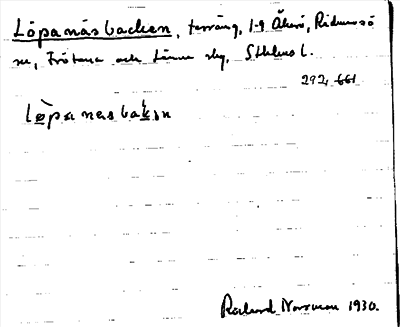 Löpanäsbacken, terräng, 1-9 Åkerö, Ridmansö
sn, Frötuna och Länna slg, Sthlms l.
292, 661
Lö̀panasbakən
Rolund Norrman 1930.